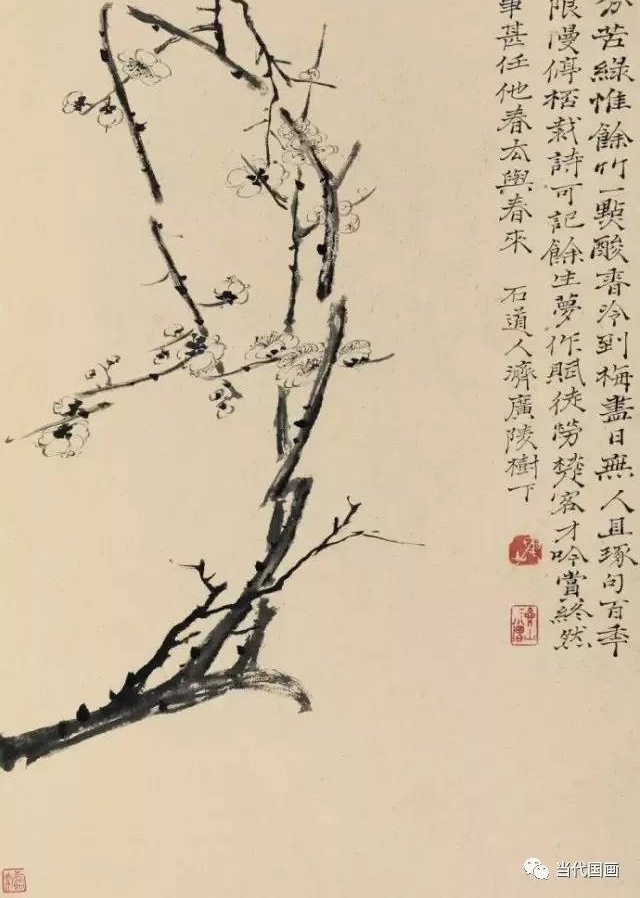 苦綠惟餘竹一點酸香冷到梅盡日無人且琢句百秊
限漫停桮裁詩可記餘生夢作賦徒勞楚客才吟賞終然
事甚任他春去與春來 石道人濟廣陵樹下
当代国画